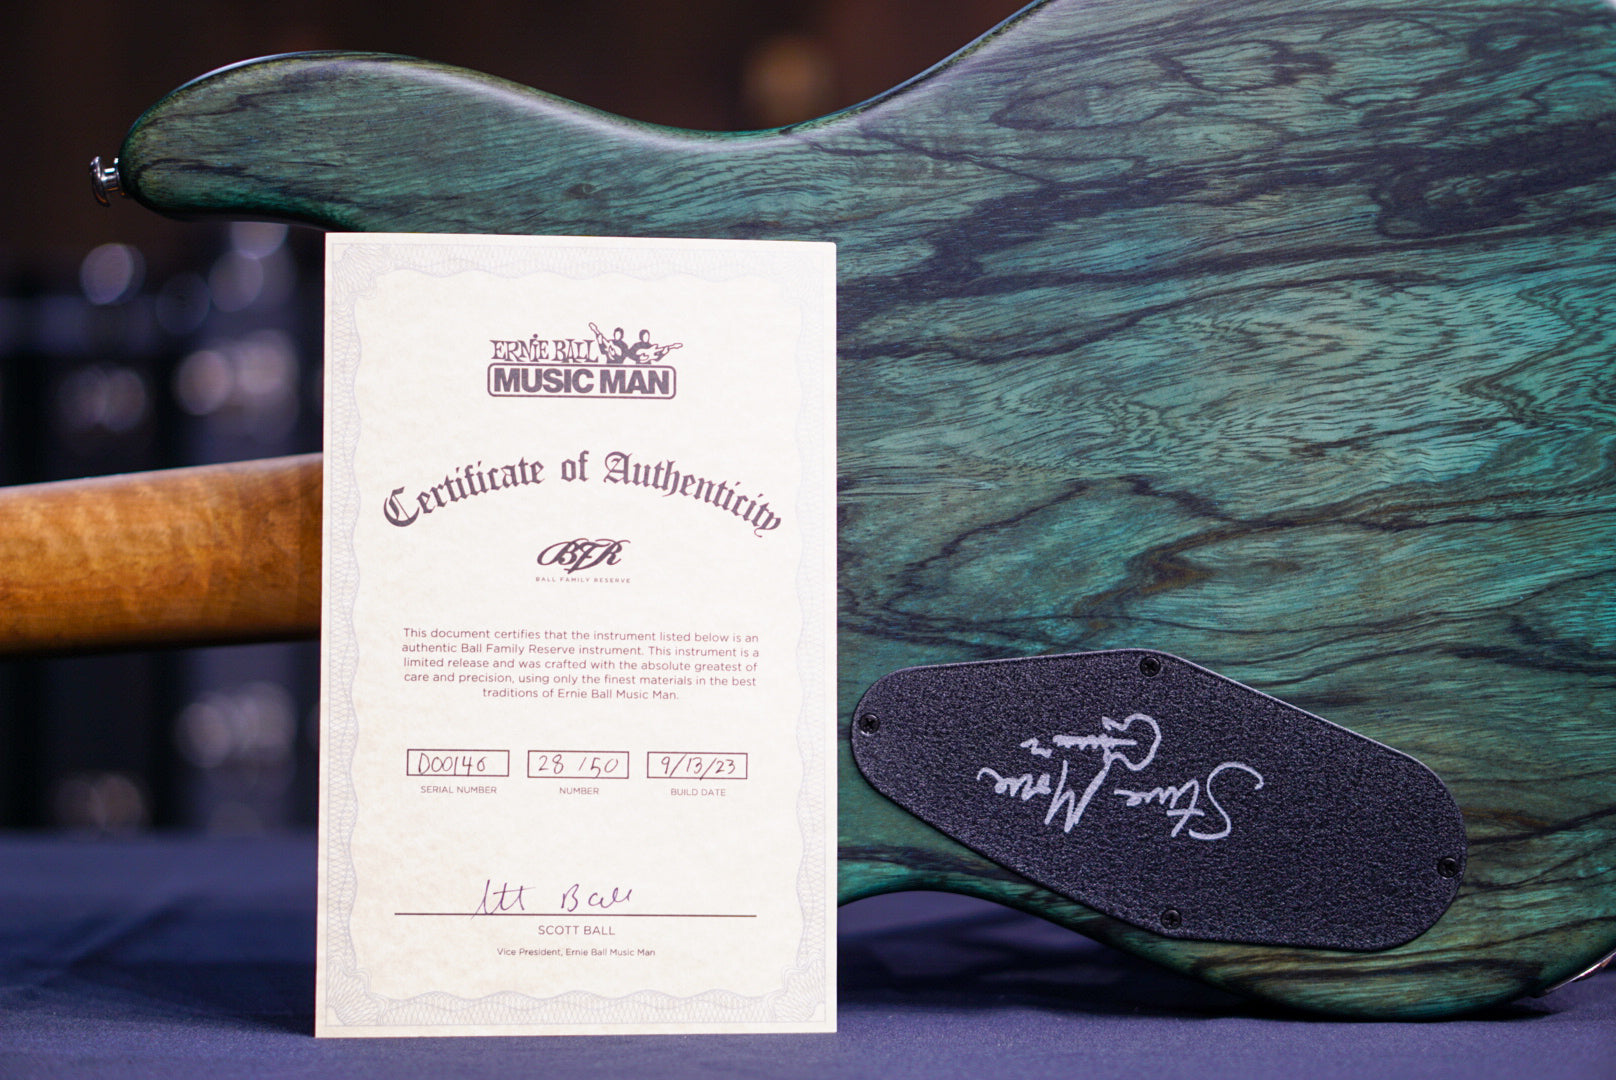 ERNIE BALL
MUSIC MAN
Certificate of Authenticity
BFR
BALL FAMILY RESERVE
This document certifies that the instrument listed below is an
authentic Ball Family Reserve instrument. This instrument is a
limited release and was crafted with the absolute greatest of
care and precision, using only the finest materials in the best
traditions of Ernie Ball Music Man.
D00146 28 / 50 9/13/23
SERIAL NUMBER NUMBER BUILD DATE
Ball
SCOTT BALL
Vice President, Ernie Ball Music Man
Steve Morse